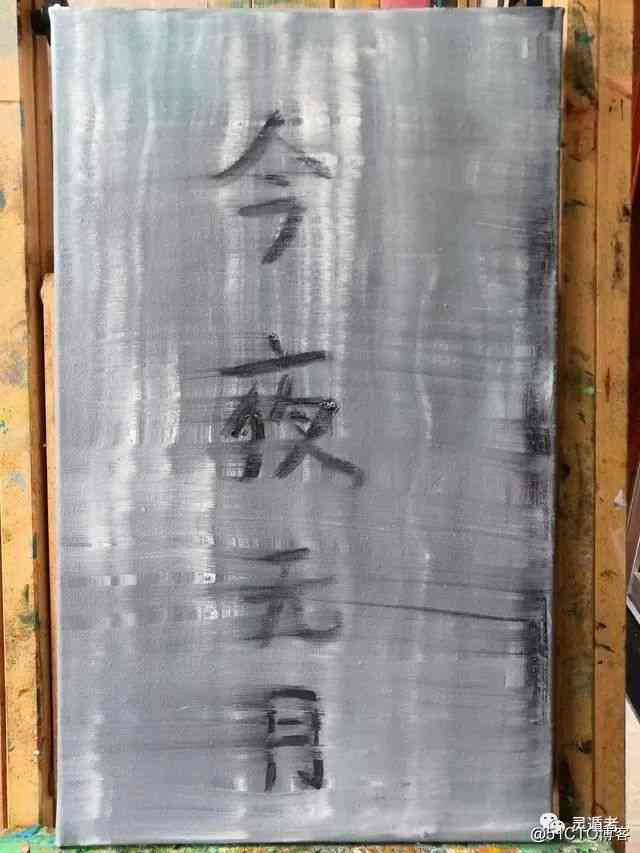 今夜无月
灵遁者
@51CTO博客